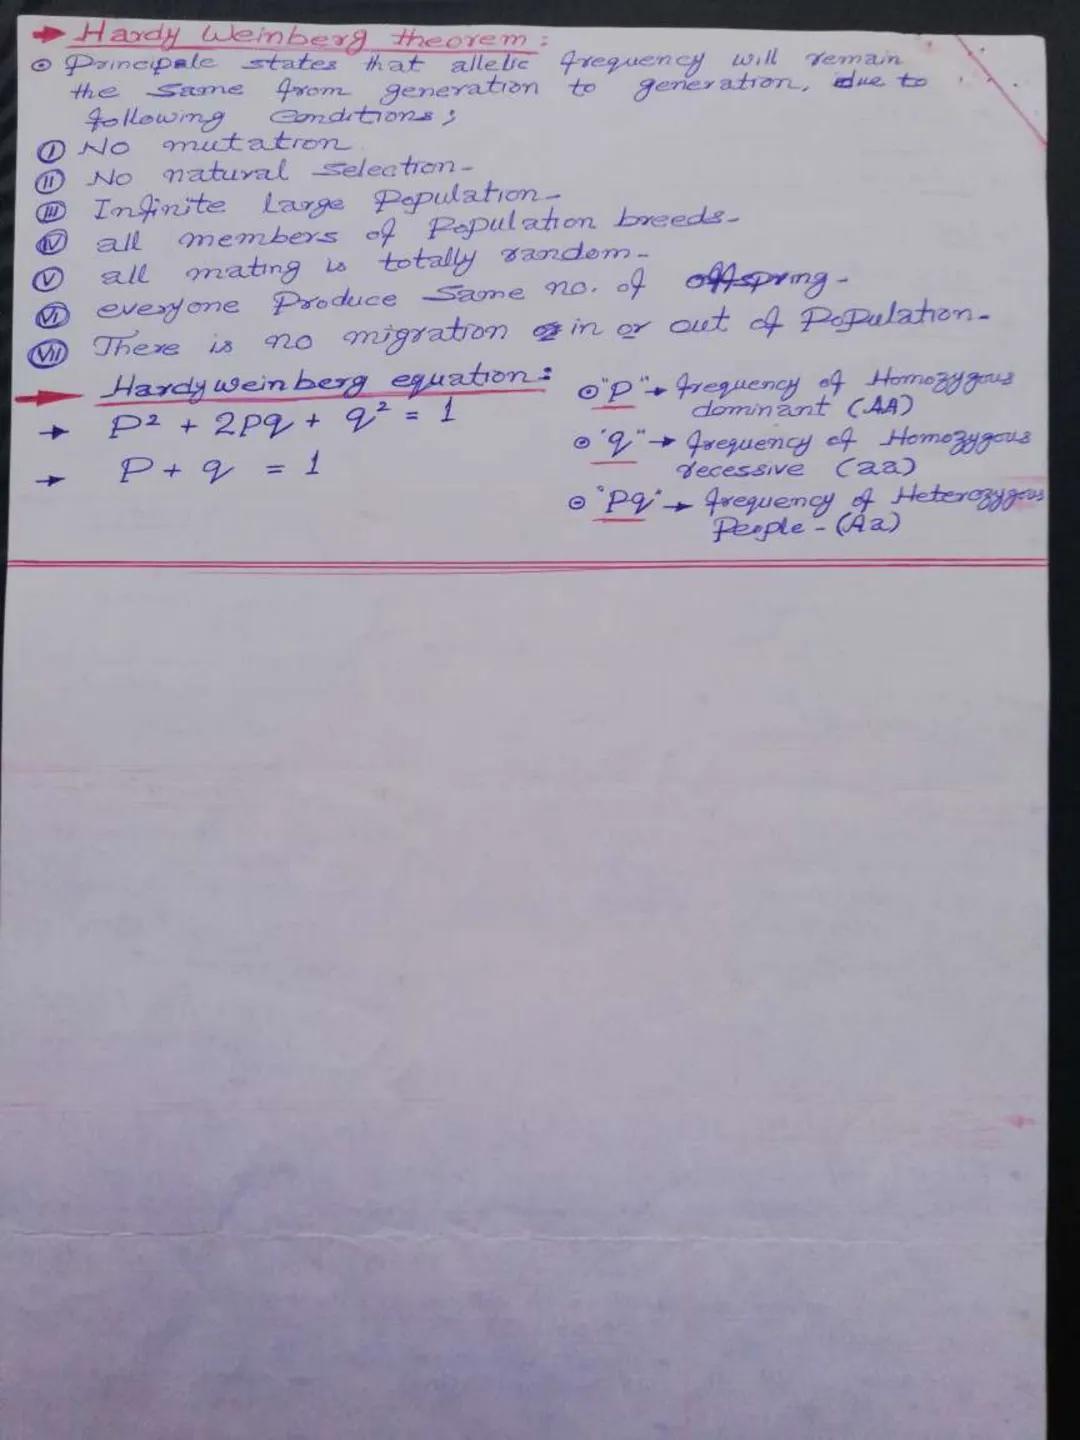 → Hardy Weinberg theorem:
⊙ Principle states that allelic frequency will remain
the same from generation to generation, due to
following conditions;
(I) No mutation
(II) No natural selection-
(III) Infinite large Population-
(IV) all members of Population breeds-
(V) all mating is totally random-
(VI) everyone Produce Same no. of offspring-
(VII) There is no migration in or out of Population-
→ Hardy weinberg equation:
→ P² + 2pq + q² = 1
→ P + q = 1
⊙ "P" → frequency of Homozygous
dominant (AA)
⊙ "q" → frequency of Homozygous
recessive (aa)
⊙ "Pq" → frequency of Heterozygous
People - (Aa)